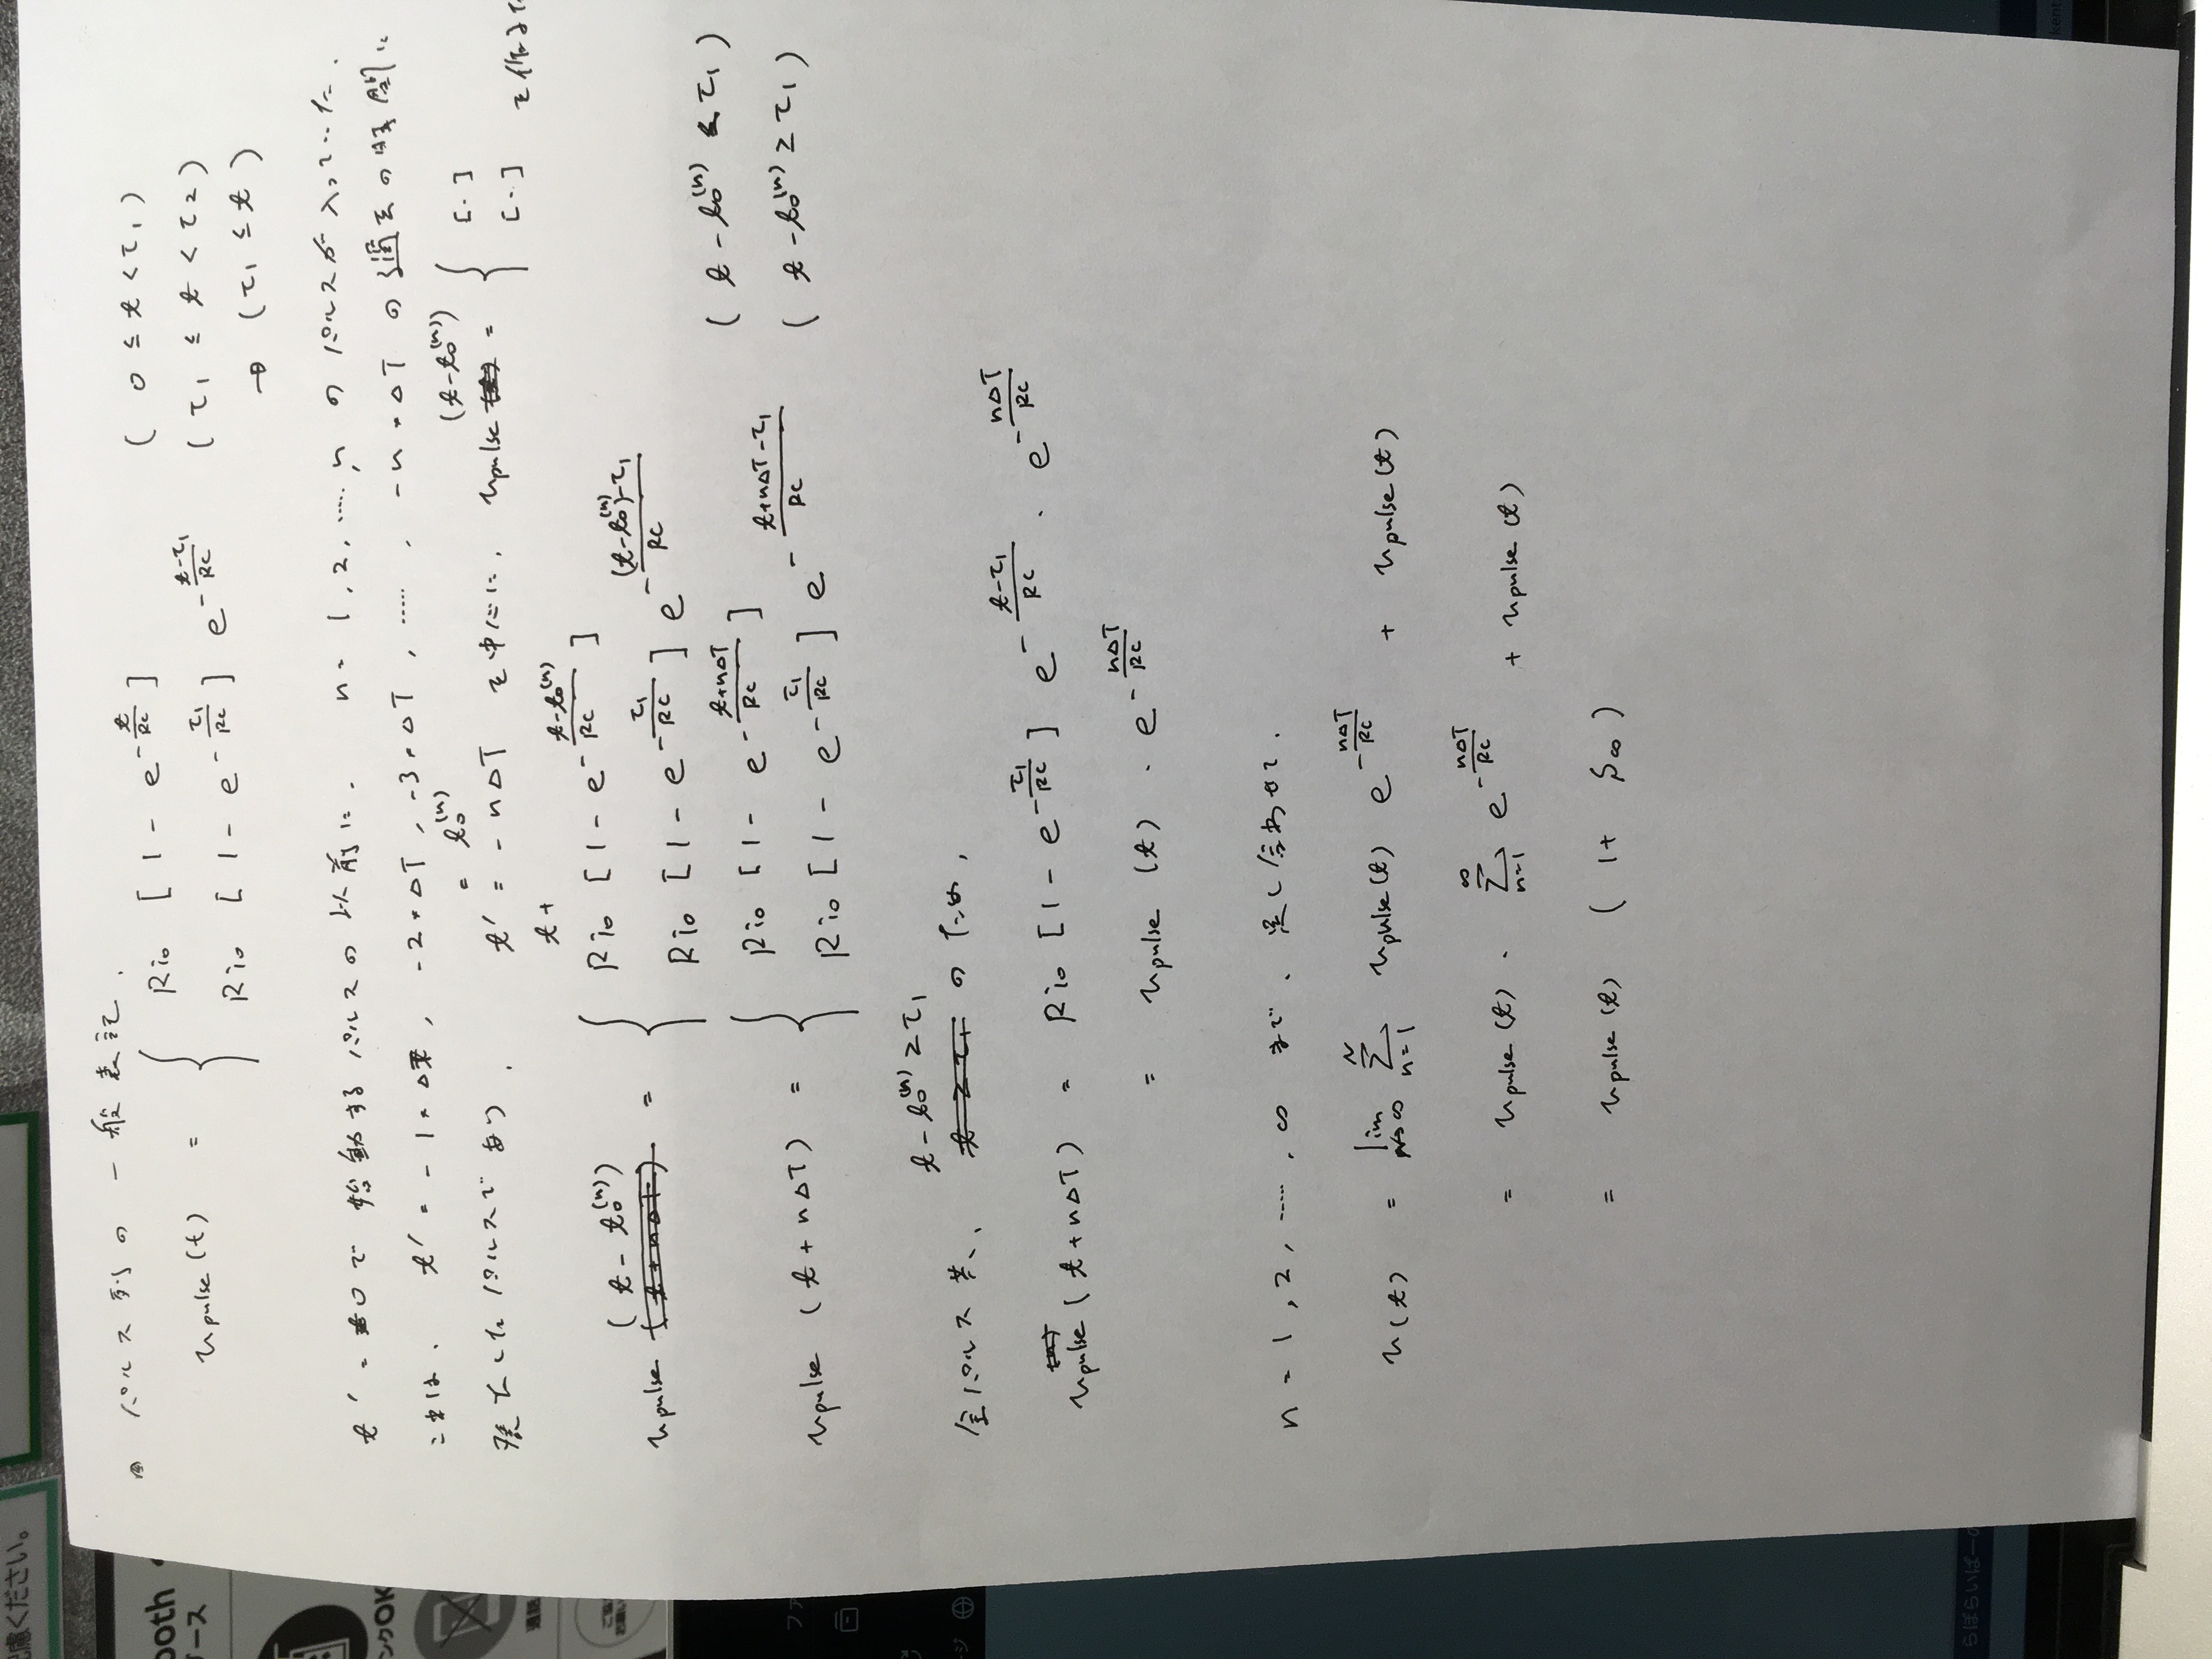 配慮ください。
ooth
ース
ンクOK
通話
パルス列の一般表記.
upulse(t) = { Rio [ 1 - e^{-\frac{t}{RC}} ] ( 0 ≦ t < τ1 )
Rio [ 1 - e^{-\frac{τ1}{RC}} ] e^{-\frac{t-τ1}{RC}} ( τ1 ≦ t < τ2 )
→ ( τ1 ≦ t )
t' = 0で始動するパルスの以前に. n = 1, 2, ....., n のパルスが入っていた.
これは. t' = -1*ΔT, -2*ΔT, -3*ΔT, ....., -n*ΔT の過去の時間に
= t0^{(n)} (t-t0^{(n)})
発生したパルスであり. t' = -nΔT を中心に, upulse = { [·]
[·] を作る
t+
upulse (t - t0^{(n)}) (t+nΔT) = { Rio [ 1 - e^{-\frac{t-t0^{(n)}}{RC}} ]
Rio [ 1 - e^{-\frac{τ1}{RC}} ] e^{-\frac{(t-t0^{(n)})-τ1}{RC}}
upulse (t+nΔT) = { Rio [ 1 - e^{-\frac{t+nΔT}{RC}} ] ( t - t0^{(n)} < τ1 )
Rio [ 1 - e^{-\frac{τ1}{RC}} ] e^{-\frac{t+nΔT-τ1}{RC}} ( t - t0^{(n)} ≥ τ1 )
t - t0^{(n)} ≥ τ1
全パルス共、 t ≥ τ1 のため,
(n)
upulse (t+nΔT) = Rio [ 1 - e^{-\frac{τ1}{RC}} ] e^{-\frac{t-τ1}{RC}} · e^{-\frac{nΔT}{RC}}
= upulse (t) · e^{-\frac{nΔT}{RC}}
n = 1, 2, ....., ∞ まで. 足し合わせて.
u(t) = lim_{N→∞} Σ_{n=1}^{N} upulse(t) e^{-\frac{nΔT}{RC}} + upulse(t)
= upulse(t) · Σ_{n=1}^{∞} e^{-\frac{nΔT}{RC}} + upulse(t)
= upulse(t) ( 1 + S∞ )
ファ
ージ
らぼらいばーの